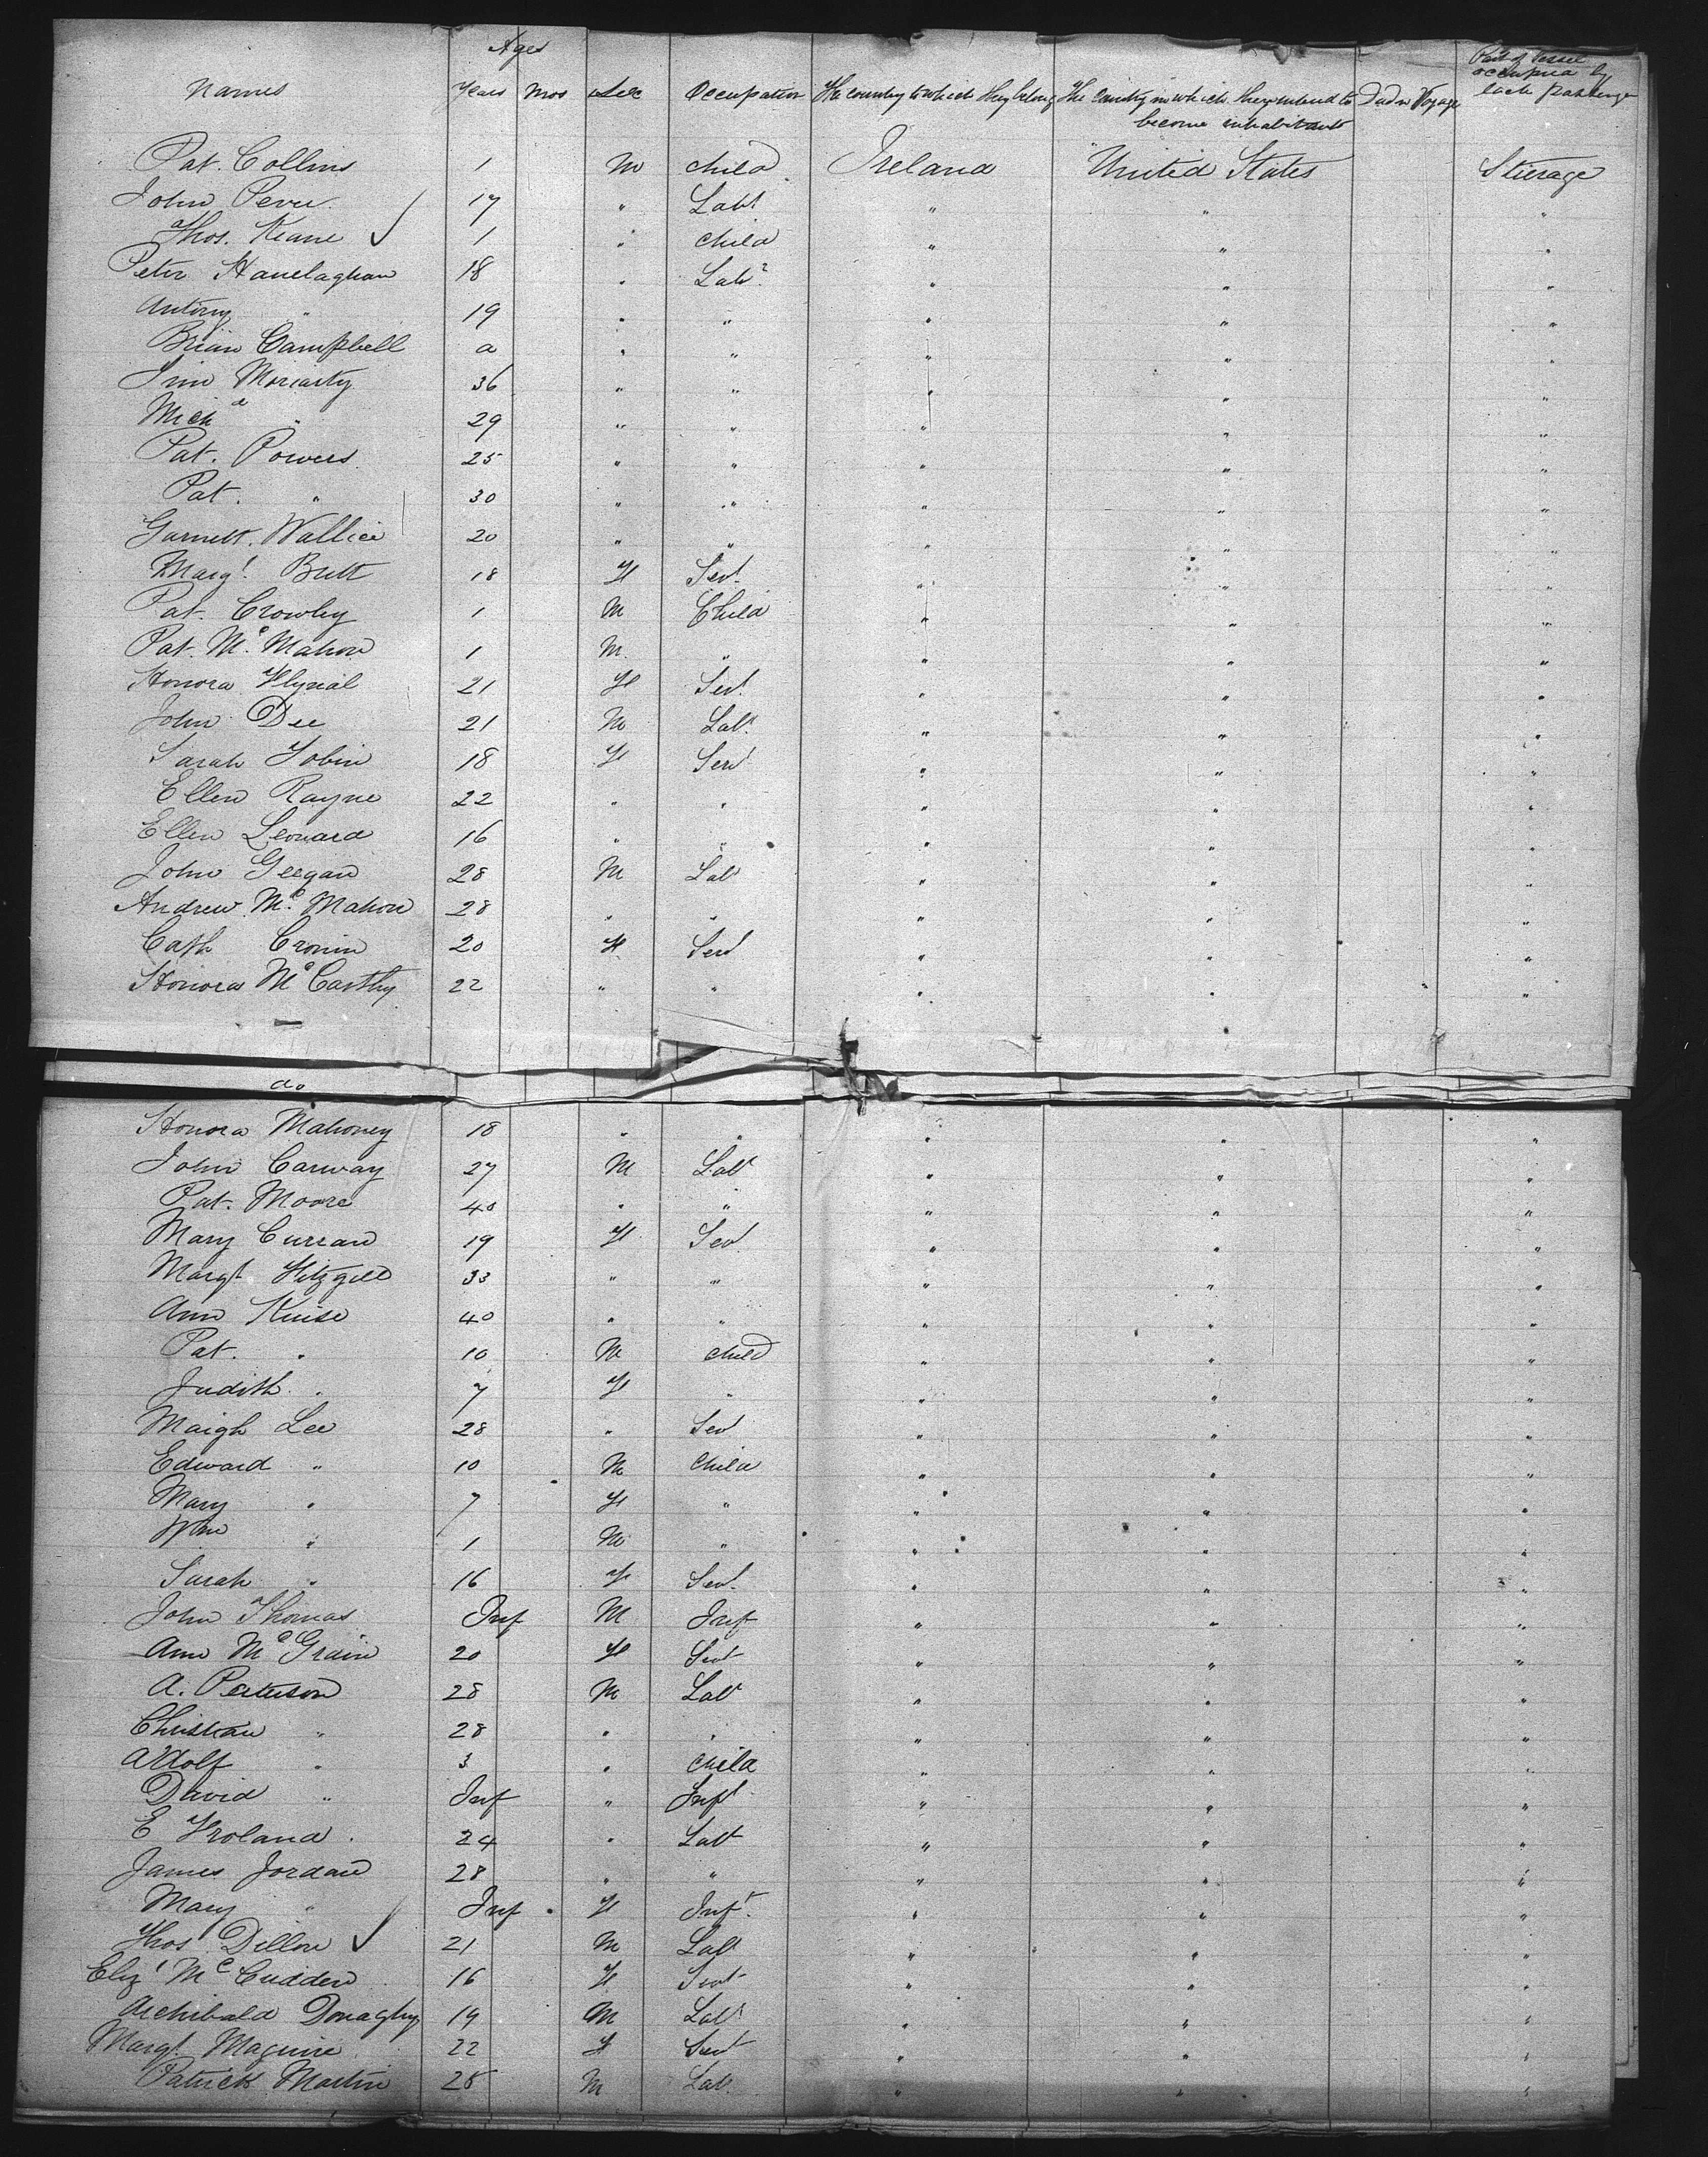 Ages
Names Years Mos Sex Occupation The country to which they belong The Country in which they intend to become inhabitants Died on Voyage Part of Vessel occupied by each passenger
Pat. Collins 1 M child Ireland United States Steerage
John 17 " Labr " " "
Thos. Keane ✓ 1 " child " " "
Peter 18 " Labr " " "
Antony " 19 " " " " "
Brian Campbell a " " " " "
Jim Moriarty 36 " " " " "
Michl " 29 " " " " "
Pat. Powers 25 " " " " "
Pat. " 30 " " " " "
Garrett. Wallice 20 " " " " "
Margt. Butt 18 F Sevt " " "
Pat. Crowley 1 M Child " " "
Pat. Mc. Mahon 1 M. " " " "
Honora 21 F Sevt " " "
John Dee 21 M Labr " " "
Sarah Tobin 18 F Servt " " "
Ellen Rayne 22 " " " " "
Ellen Leonard 16 " " " " "
John Geegan 28 M Labr " " "
Andrew Mc. Mahon 28 " " " " "
Cath Cronin 20 F Servt " " "
Honora Mc Carthy 22 " " " " "
do
Honora Mahoney 18 " " " " "
John Carway 27 M Labr " " "
Pat. Moore 40 " " " " "
Mary Curran 19 F Sevt " " "
Margt Fitzgeld 33 " " " " "
Ann Kuise 40 " " " " "
Pat. " 10 M child " " "
Judith. " 7 F " " " "
Margh Lee 28 " Sevt " " "
Edward " 10 M Child " " "
Mary " 7 F " " " "
Wm " 1 M " " " "
Sarah " 16 F Sevt. " " "
John Thomas Inf M Inft " " "
Ann Mc Grain 20 F Sevt " " "
A. Peterson 28 M Labr " " "
Christian " 28 " " " " "
Adolf " 3 " child " " "
David " Inf " Inft " " "
E Froland. 24 " Labr " " "
James Jordan 28 " " " " "
Mary " Inf F Inft. " " "
Thos Dillon ✓ 21 M Labr " " "
Elizt Mc Cudden 16 F Sevt " " "
Archibald Donaghy 19 M Labr " " "
Margt Maguire 22 F Sevt " " "
Patrick Martin 25 M Labr " " "